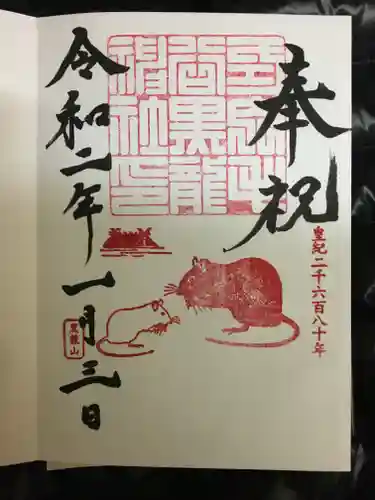 奉祝
皇紀二千六百八十年
令和二年一月三日
黒龍山